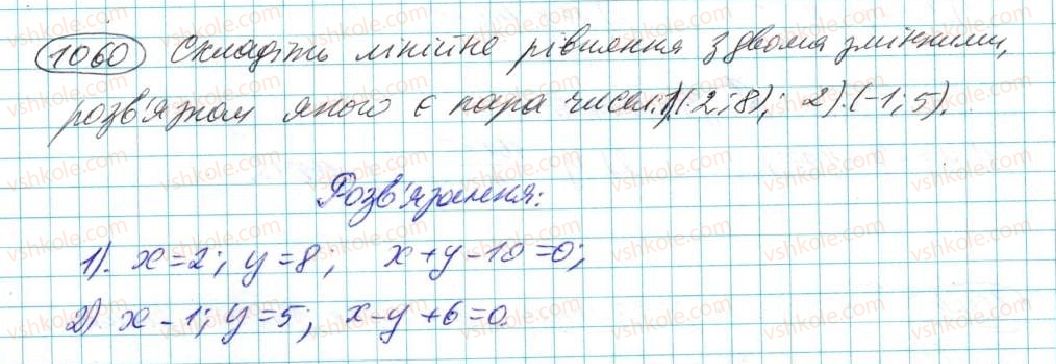 1060 Складіть лінійне рівняння з двома змінними,
розв'язком якого є пара чисел: 1) (2; 8); 2). (-1; 5).
Розв'язання:
1). x = 2; y = 8; x + y - 10 = 0;
2). x - 1; y = 5; x - y + 6 = 0.